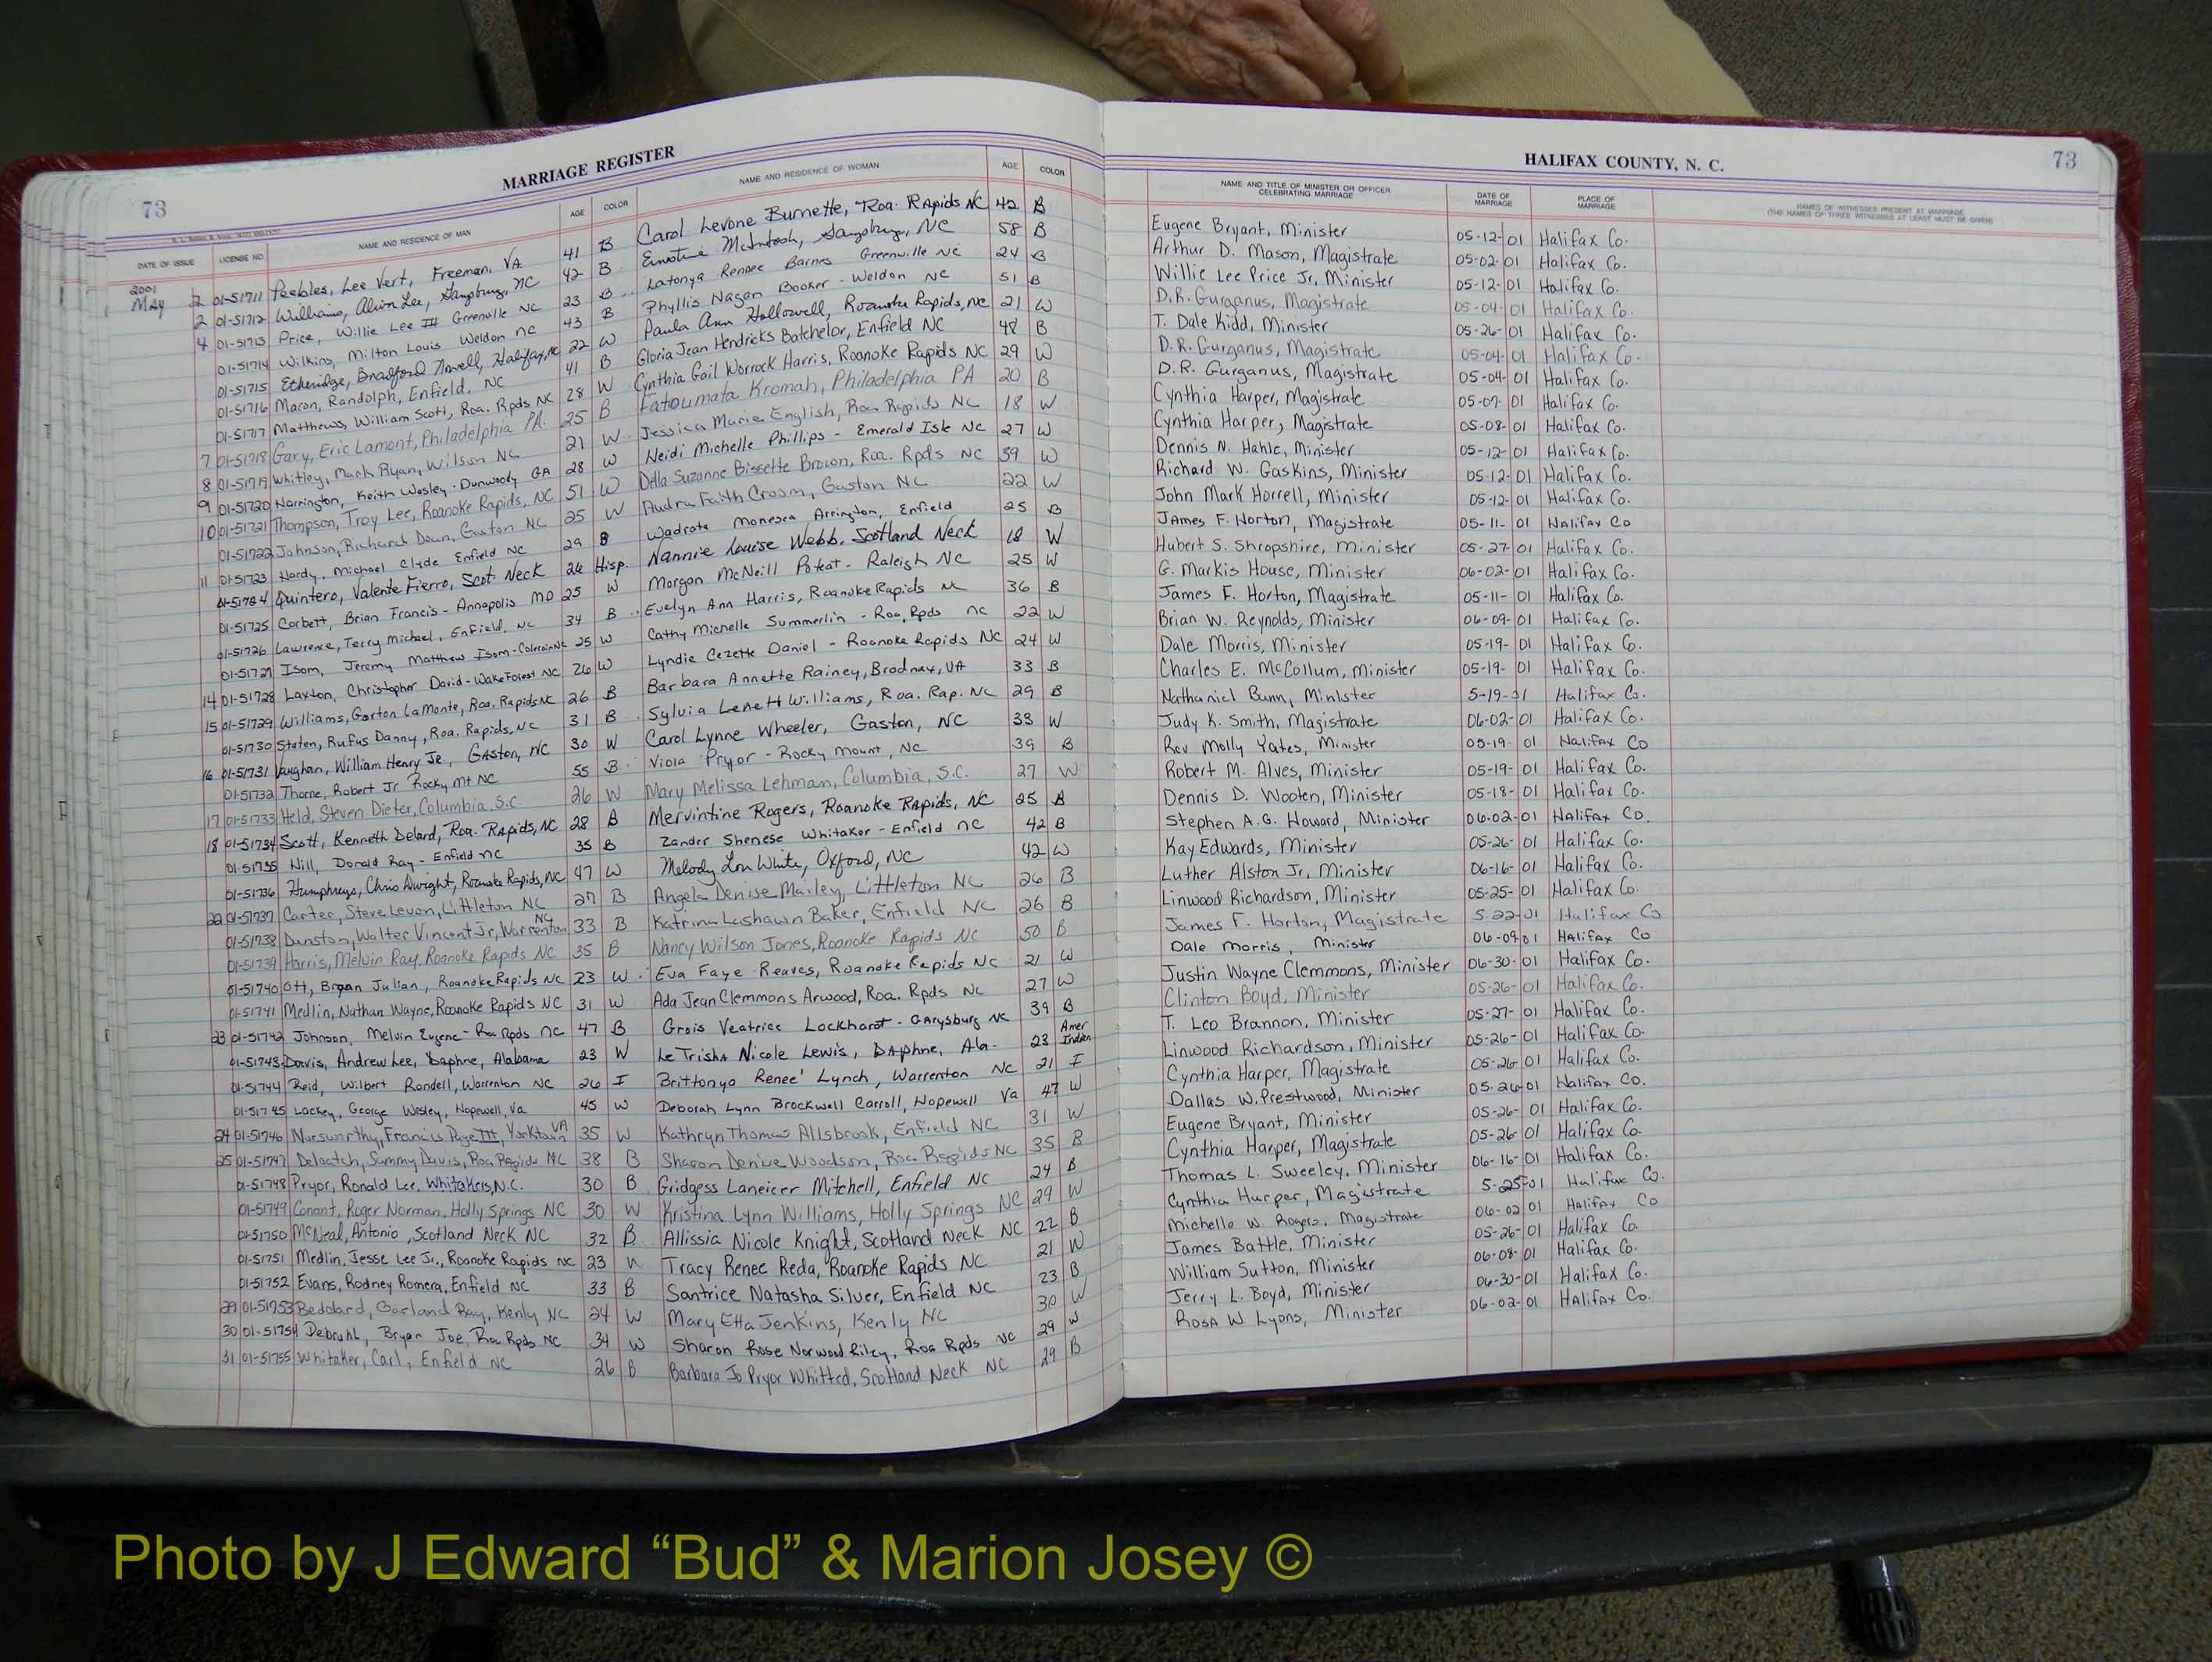 MARRIAGE REGISTER
73
DATE OF ISSUE LICENSE NO. NAME AND RESIDENCE OF MAN AGE COLOR NAME AND RESIDENCE OF WOMAN AGE COLOR
HALIFAX COUNTY, N. C.
73
NAME AND TITLE OF MINISTER OR OFFICER CELEBRATING MARRIAGE DATE OF MARRIAGE PLACE OF MARRIAGE NAMES OF WITNESSES PRESENT AT MARRIAGE (THE NAMES OF THREE WITNESSES AT LEAST MUST BE GIVEN)
2001
May 2 01-51711 Peebles, Lee Vert, Freeman, VA 41 B Carol Levone Burnette, Roa. Rapids NC 42 B Eugene Bryant, Minister 05-12-01 Halifax Co.
2 01-51712 Williams, Lee, NC 42 B McIntosh, NC 58 B Arthur D. Mason, Magistrate 05-02-01 Halifax Co.
4 01-51713 Price, Willie Lee III Greenville NC 23 B Latonya Rennee Barnes Greenville NC 24 B Willie Lee Price Jr, Minister 05-12-01 Halifax Co.
01-51714 Wilkins, Milton Louis Weldon NC 43 B Phyllis Nagan Booker - Weldon NC 51 B D.R. Gurganus, Magistrate 05-04-01 Halifax Co.
01-51715 Etheridge, Bradford, Halifax, NC 22 W Paula Ann Hollowell, Roanoke Rapids, NC 21 W T. Dale Kidd, Minister 05-26-01 Halifax Co.
01-51716 Macon, Randolph, Enfield, NC 41 B Gloria Jean Hendricks Batchelor, Enfield NC 48 B D.R. Gurganus, Magistrate 05-04-01 Halifax Co.
01-51717 Matthews, William Scott, Roa. Rpds NC 28 W Cynthia Gail Worrock Harris, Roanoke Rapids NC 29 W D.R. Gurganus, Magistrate 05-04-01 Halifax Co.
7 01-51718 Gary, Eric Lamont, Philadelphia PA. 25 B Fatoumata Kromah, Philadelphia PA 20 B Cynthia Harper, Magistrate 05-07-01 Halifax Co.
8 01-51719 Whitley, Mark Ryan, Wilson NC 21 W Jessica Marie English, Roa Rapids NC 18 W Cynthia Harper, Magistrate 05-08-01 Halifax Co.
9 01-51720 Harrington, Keith Wesley - Dunwoody GA 28 W Heidi Michelle Phillips - Emerald Isle NC 27 W Dennis N. Hahle, Minister 05-12-01 Halifax Co.
10 01-51721 Thompson, Troy Lee, Roanoke Rapids, NC 51 W Della Suzanne Bissette Brown, Roa. Rpds NC 39 W Richard W. Gaskins, Minister 05-12-01 Halifax Co.
01-51722 Johnson, Richard Dean, Gaston NC 25 W Audra Faith Croom, Gaston NC 22 W John Mark Horrell, Minister 05-12-01 Halifax Co.
11 01-51723 Hardy, Michael Clyde Enfield NC 29 B Wadrata Monesea Arrington, Enfield 25 B James F. Horton, Magistrate 05-11-01 Halifax Co
01-51724 Quintero, Valente Fierro, Scot. Neck 26 Hisp. Nannie Louise Webb, Scotland Neck 18 W Hubert S. Shropshire, Minister 05-27-01 Halifax Co.
01-51725 Corbett, Brian Francis - Annapolis MD 25 W Morgan McNeill Poteat - Raleigh NC 25 W G. Markis House, Minister 06-02-01 Halifax Co.
01-51726 Lawrence, Terry Michael, Enfield, NC 34 B Evelyn Ann Harris, Roanoke Rapids NC 36 B James F. Horton, Magistrate 05-11-01 Halifax Co.
01-51727 Isom, Jeremy Matthew Isom - Colerain NC 25 W Cathy Michelle Summerlin - Roa. Rpds NC 22 W Brian W. Reynolds, Minister 06-09-01 Halifax Co.
14 01-51728 Laxton, Christopher David - Wake Forest NC 26 W Lyndie Cezette Daniel - Roanoke Rapids NC 24 W Dale Morris, Minister 05-19-01 Halifax Co.
15 01-51729 Williams, Gorton LaMonte, Roa. Rapids NC 26 B Barbara Annette Rainey, Brodnax, VA 33 B Charles E. McCollum, Minister 05-19-01 Halifax Co.
01-51730 Staten, Rufus Danny, Roa. Rapids, NC 31 B Sylvia Lenett Williams, Roa. Rap. NC 29 B Nathaniel Bunn, Minister 5-19-01 Halifax Co.
16 01-51731 Vaughan, William Henry Jr., Gaston, NC 30 W Carol Lynne Wheeler, Gaston, NC 33 W Judy K. Smith, Magistrate 06-02-01 Halifax Co.
01-51732 Thorne, Robert Jr Rocky Mt NC 55 B Viola Pryor - Rocky Mount, NC 39 B Rev Molly Yates, Minister 05-19-01 Halifax Co
17 01-51733 Held, Steven Dieter, Columbia, S.C. 26 W Mary Melissa Lehman, Columbia, S.C. 27 W Robert M. Alves, Minister 05-19-01 Halifax Co.
18 01-51734 Scott, Kenneth Delard, Roa. Rapids, NC 28 B Mervintine Rogers, Roanoke Rapids, NC 25 B Dennis D. Wooten, Minister 05-18-01 Halifax Co.
01-51735 Hill, Donald Ray - Enfield NC 35 B Zander Shenese Whitaker - Enfield NC 42 B Stephen A.G. Howard, Minister 06-02-01 Halifax Co.
01-51736 Humphreys, Chris Dwight, Roanoke Rapids, NC 47 W Melody Lou White, Oxford, NC 42 W Kay Edwards, Minister 05-26-01 Halifax Co.
22 01-51737 Carter, Steve Levon, Littleton NC 27 B Angela Denise Mailey, Littleton NC 26 B Luther Alston Jr, Minister 06-16-01 Halifax Co.
01-51738 Dunston, Walter Vincent Jr, Warrenton NC 33 B Katrina Lashawn Baker, Enfield NC 26 B Linwood Richardson, Minister 05-25-01 Halifax Co.
01-51739 Harris, Melvin Ray, Roanoke Rapids NC 35 B Nancy Wilson Jones, Roanoke Rapids NC 50 B James F. Horton, Magistrate 5-22-01 Halifax Co
01-51740 Ott, Bryan Julian, Roanoke Rapids NC 23 W Eva Faye Reaves, Roanoke Rapids NC 21 W Dale Morris, Minister 06-09-01 Halifax Co
01-51741 Medlin, Nathan Wayne, Roanoke Rapids NC 31 W Ada Jean Clemmons Arwood, Roa. Rpds NC 27 W Justin Wayne Clemmons, Minister 06-30-01 Halifax Co.
23 01-51742 Johnson, Melvin Eugene - Roa Rpds NC 47 B Grois Veatrice Lockhart - Garysburg NC 39 B Clinton Boyd, Minister 05-26-01 Halifax Co.
01-51743 Davis, Andrew Lee, Daphne, Alabama 23 W LeTrisha Nicole Lewis, Daphne, Ala. 23 Amer Indian T. Leo Brannon, Minister 05-27-01 Halifax Co.
01-51744 Reid, Wilbert Rondell, Warrenton NC 26 I Brittonya Renee' Lynch, Warrenton NC 21 I Linwood Richardson, Minister 05-26-01 Halifax Co.
01-51745 Lackey, George Wesley, Hopewell, Va 45 W Deborah Lynn Brockwell Carroll, Hopewell Va 47 W Cynthia Harper, Magistrate 05-26-01 Halifax Co.
24 01-51746 Norsworthy, Francis Page III, Yorktown VA 35 W Kathryn Thomas Allsbrook, Enfield NC 31 W Dallas W. Prestwood, Minister 05-26-01 Halifax Co.
25 01-51747 Deloatch, Sammy Davis, Roa Rapids NC 38 B Sharon Denise Woodson, Roa. Rapids NC 35 B Eugene Bryant, Minister 05-26-01 Halifax Co.
01-51748 Pryor, Ronald Lee, Whitakers, N.C. 30 B Gridgess Laneicer Mitchell, Enfield NC 24 B Cynthia Harper, Magistrate 05-26-01 Halifax Co.
01-51749 Conant, Roger Norman, Holly Springs NC 30 W Kristina Lynn Williams, Holly Springs NC 29 W Thomas L. Sweeley, Minister 06-16-01 Halifax Co.
01-51750 McNeal, Antonio, Scotland Neck NC 32 B Allissia Nicole Knight, Scotland Neck NC 22 B Cynthia Harper, Magistrate 5-25-01 Halifax Co.
01-51751 Medlin, Jesse Lee Jr., Roanoke Rapids NC 23 W Tracy Renee Reda, Roanoke Rapids NC 21 W Michelle W. Rogers, Magistrate 06-02-01 Halifax Co
01-51752 Evans, Rodney Romera, Enfield NC 33 B Santrice Natasha Silver, Enfield NC 23 B James Battle, Minister 05-26-01 Halifax Co.
29 01-51753 Beddard, Garland Ray, Kenly NC 24 W Mary Etta Jenkins, Kenly NC 30 W William Sutton, Minister 06-08-01 Halifax Co.
30 01-51754 Debruhl, Bryan Joe, Roa Rpds NC 34 W Sharon Rose Norwood Riley, Roa Rpds NC 29 W Jerry L. Boyd, Minister 06-30-01 Halifax Co.
31 01-51755 Whitaker, Carl, Enfield NC 26 B Barbara Jo Pryor Whitted, Scotland Neck NC 29 B Rosa W Lyons, Minister 06-02-01 Halifax Co.
Photo by J Edward “Bud” & Marion Josey ©